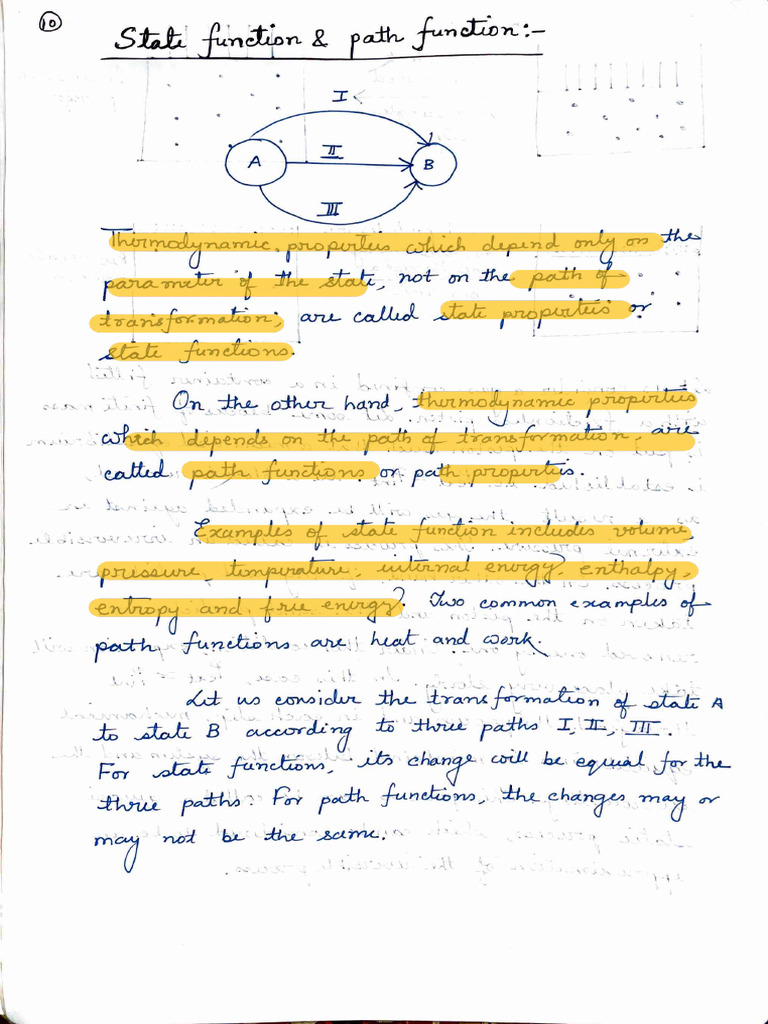 10
State function & path function:-
I
A II B
III
Thermodynamic properties which depend only on the
parameter of the state, not on the path of
transformation, are called state properties or
state functions.
On the other hand, thermodynamic properties
which depends on the path of transformation, are
called path functions or path properties.
Examples of state function includes volume,
pressure, temperature, internal energy, enthalpy,
entropy and free energy. Two common examples of
path functions are heat and work.
Let us consider the transformation of state A
to state B according to three paths I, II, III.
For state functions, its change will be equal for the
three paths. For path functions, the changes may or
may not be the same.